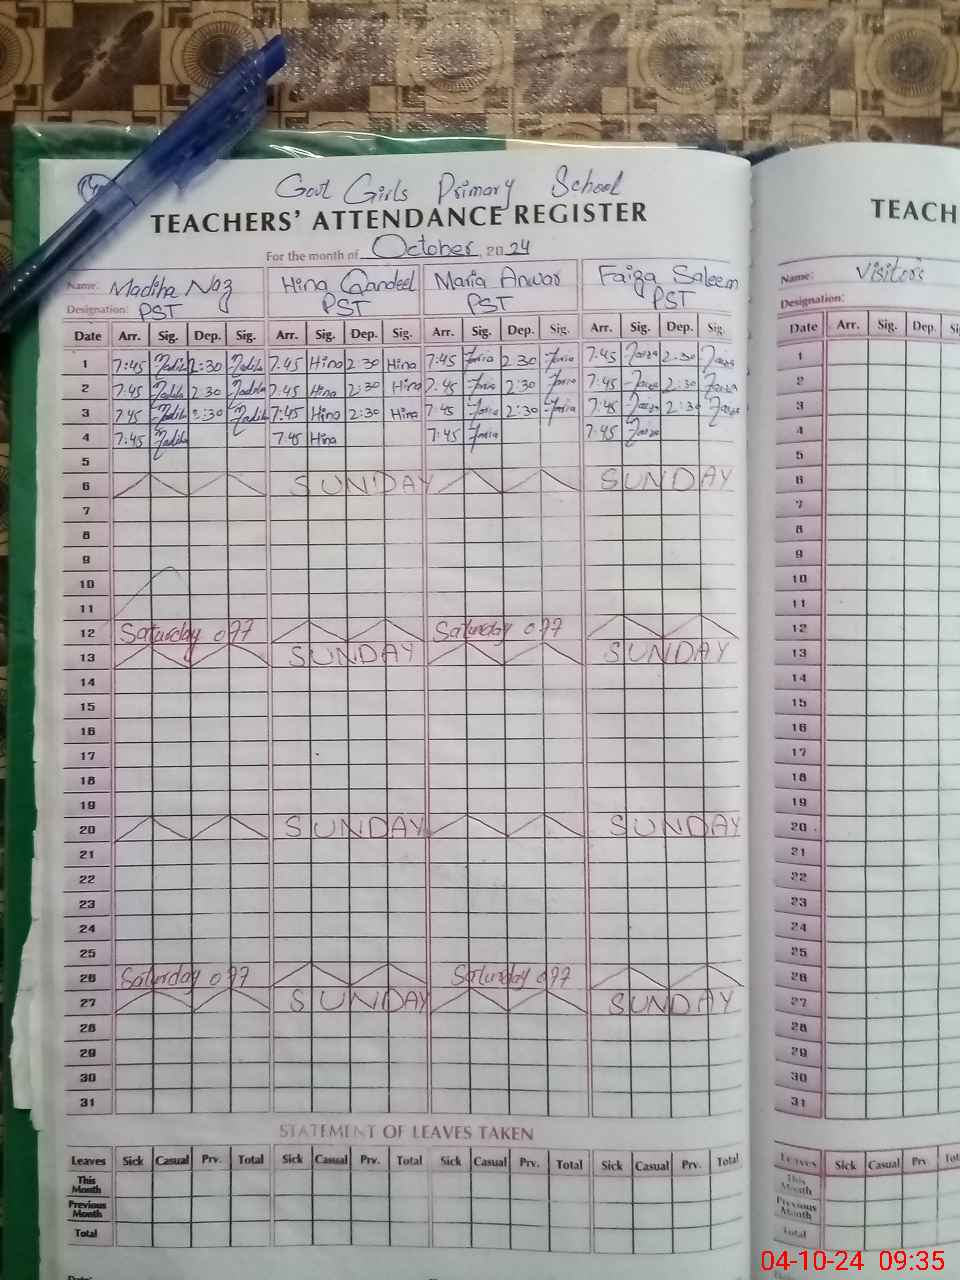 Govt Girls Primary School
TEACHERS' ATTENDANCE REGISTER
For the month of October, 2024
Name: Madiha Naz Hina Qandeel Maria Anwar Faiza Saleem
Designation: PST PST PST PST
Date Arr. Sig. Dep. Sig. Arr. Sig. Dep. Sig. Arr. Sig. Dep. Sig. Arr. Sig. Dep. Sig.
1 7:45 Madiha 2:30 Madiha 7:45 Hina 2:30 Hina 7:45 2:30 7:45 Faiza 2:30 Faiza
2 7:45 Madiha 2:30 Madiha 7:45 Hina 2:30 Hina 7:45 2:30 7:45 Faiza 2:30 Faiza
3 7:45 Madiha 2:30 Madiha 7:45 Hina 2:30 Hina 7:45 2:30 7:45 Faiza 2:30 Faiza
4 7:45 Madiha 7:45 Hina 7:45 7:45 Faiza
5
6 SUNDAY SUNDAY
7
8
9
10
11
12 Saturday off Saturday off
13 SUNDAY SUNDAY
14
15
16
17
18
19
20 SUNDAY SUNDAY
21
22
23
24
25
26 Saturday off Saturday off
27 SUNDAY SUNDAY
28
29
30
31
STATEMENT OF LEAVES TAKEN
Leaves Sick Casual Prv. Total Sick Casual Prv. Total Sick Casual Prv. Total Sick Casual Prv. Total
This Month
Previous Month
Total
TEACH
Name: Visitors
Designation:
Date Arr. Sig. Dep. Sig.
1
2
3
4
5
6
7
8
9
10
11
12
13
14
15
16
17
18
19
20
21
22
23
24
25
26
27
28
29
30
31
Leaves Sick Casual Prv. Tot
This Month
Previous Month
Total
04-10-24 09:35